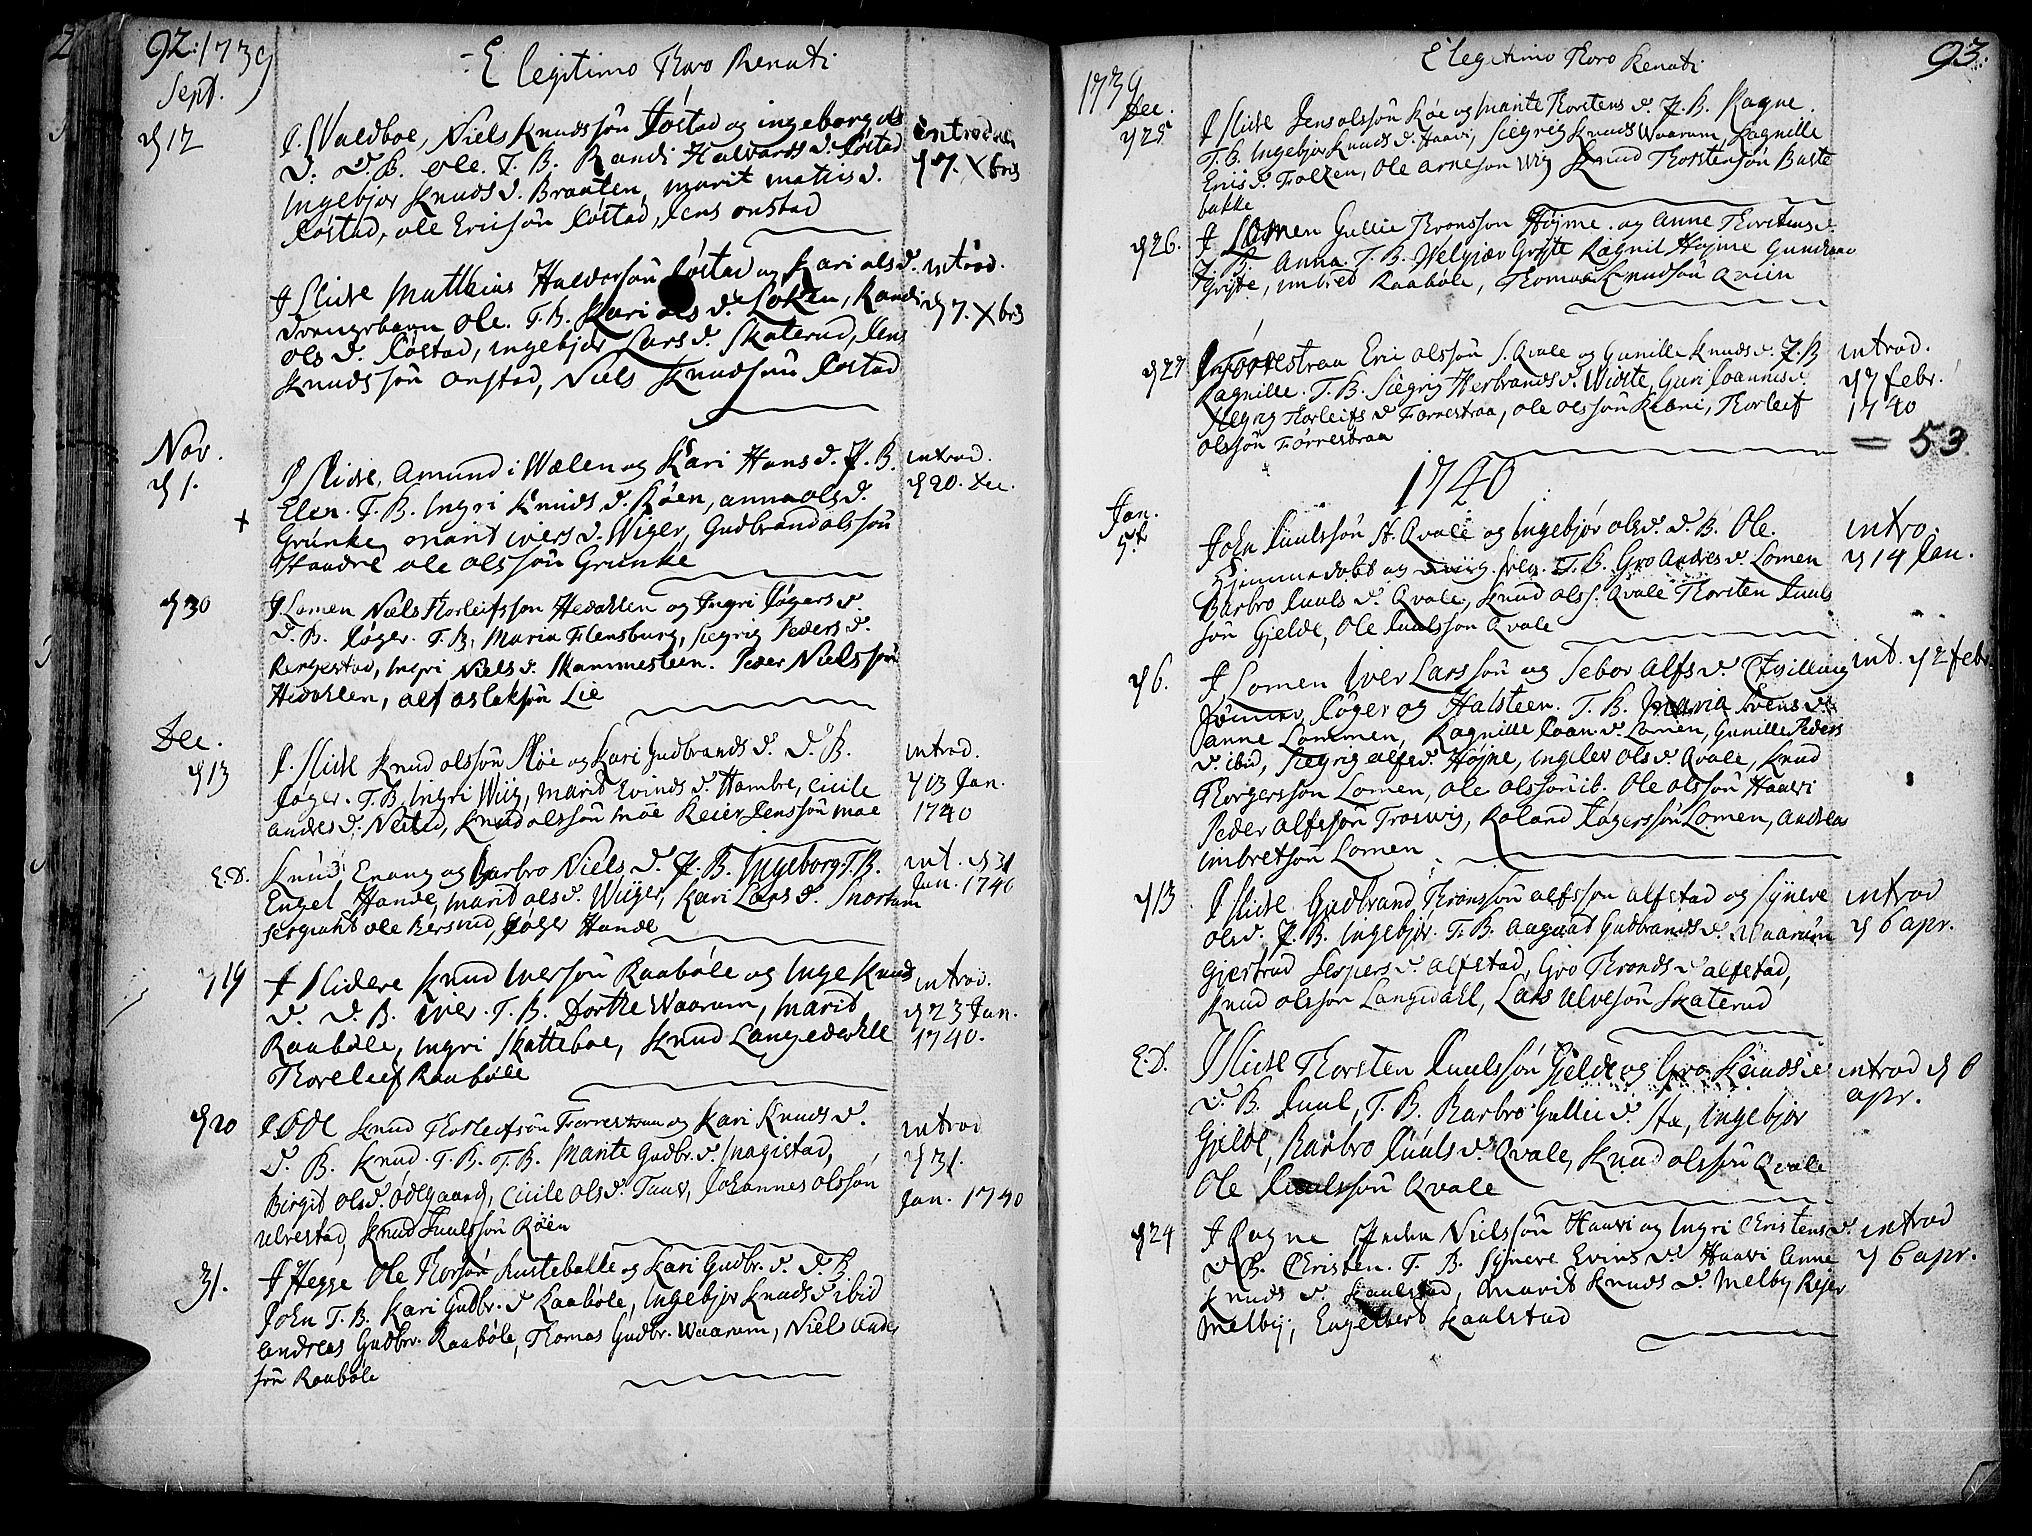 92. 1739
E legitimo Thoro Renati
Sept.
d 12
J Waldboe, Niels Knudssön Jöstad og ingeborg ols
D. D. B. Ole. T. B. Randi Halvards d. Jöstad
Ingebjor Knuds d. Braaten, marit mathis d.
Jöstad, ole Ericsön Jöstad, Jens onstad
introd.
d 7. Xbris
J Slidre Matthias Haldorsön Jöstad og Kari ols d.
Drengebarn Ole. T. B. Kari ols d. Löken, Randi
ols d. Jöstad, ingebjör Lars d. Skaterud, Jens
Knudssön onstad, Niels Knudssön Jöstad
introd.
d 7. Xbris
Nov.
d 1.
J Slidre, Amund i Wælen og Kari Hans d. P. B.
Elen. T. B. Ingri Knuds d. Röen, anna ols d.
Grünke, marit ivers d. Wiger, Gudbrand olssön
Haudre ole olssön Grünke
introd.
d 20. Dec.
+
d 30
J Lomen Niels Thorleifsson Hedahlen og Ingri Jögers d.
D. B. Jöger. T. B. Maria Flensburg, Siegrig Peders d.
Rengestad, Ingri Niels d. Skammesteen. Peder Nielssön
Hedahlen, alf aslaksön Lie
Dec.
d 13
J. Slidre Knud olssön Möe og Kari Gudbrands d. D. B.
Jöger. T. B. Ingri Wiig, Marit Evinds d. Hambre, Cicile
andres d. Nested, Knud olssön möe Reier Jenssön moe
introd.
d 13 Jan.
1740
E. D.
Knud Enang og Barbro Niels d. P. B. Ingeborg. T. B.
Engel Hande, marit ols d. Wiiger, Kari Lars d. Snortum
sergiant ole Bersvend, Jöger Hande
int. d 31
Jan. 1740
d 19
J Slidere Knud Iversön Raaböle og Inge Knuds
d. D. B. Iver. T. B. Dorthe Waarum, Marit
Raaböle, Ingri Skatteboe, Knud Langedahle
Thoreleif Raaböle
introd.
d 23 Jan.
1740.
d 20
J Ödl Knud Thorleifsön Forrestraa og Kari Knuds d.
D. B. Knud. T. B. T. B. Marite Gudbr. d. Magistad,
Birgit ols d. Ödegaard, Cicile ols d. Tauer, Johannes olssön
ulvestad, Knud Juulssön Röen
introd
d 31.
Jan. 1740
31.
J Hegge Ole Thorsön Kustebakke og Kari Gudbr. d. D. B.
John T. B. Kari Gudbr. d Raaböle, Ingebjör Knuds d ibid
andreas Gudbr. Raaböle, Thomas Gudbr. Waarum, Niels Andr
sön Raaböle
93.
E legitimo Thoro Renati
1739
Dec.
d 25
J Slidre Jens olssön Röe og Marite Thorstens d. P. B. Ragne.
T. B. Ingebjör Knuds d. Haavi, Siegrig Knuds Waarum, Ragnille
Erics d. Folzen, Ole Arneson Wiig Knud Thorstensön Buste
bakke
d 26.
J Lomen Gullic Thronsson Höjme. og Anne Thorstens d.
P. B. Anna. T. B. Welgiær Gryte Ragnil Höjme Gundvor
Gryte, imbred Raaböle, Thomas Knudssön Qvien
d 27
J Forrestraa Eric olssön S. Qvale og Gunille Knuds d. P. B
Ragnille. T. B. Siegrig Herbrands d. Widste, Guri Joannis d.
Siegrig Thorleifs d Forrestraa, ole olssön Rebni, Thorleif
olssön Forrestraa
introd.
d 7 febr.
1740
= 53.
1740
Jan.
5t
John Juulssön N. Qvale og Ingebjör ols d. D. B. Ole.
Hjemmedöbt og T. B. Gro Andres d. Lomen
Barbro Juuls d. Qvale, Knud olss. Qvale Thorsten Juuls
sön Gjelde, Ole Juulsson Qvale
intro.
d 14 Jan.
d 6.
J Lomen Iver Larssön og Tebor Alfs d. Tvilling
Jöger og Halsteen. T. B. Maria Svens d.
anne Lommen, Ragnille Joan d. Lomen, Gunille Peders
d. ibid, Siegrig alfs d. Höjne, ingeler ols d. Qvale, Knud
Thorgerssön Lomen, ole olssön ib. Ole olssön Haavi
Peder Alfssön Troswig, Roland Jögerssön Lomen, Andrea
imbretsön Lomen
int. d 2 febr.
d 13
J Slidre Gudbrand Thronssön alfssön alfstad og Syneve
ols d. P. B. Ingebjör. T. B. Aagaat Gudbrands d. Waarum
Gjertrud Jespers d. alfstad, Gro Thronds d alfstad,
Knud olssön Langedahl, Lars Ulvesön Skaterud
introd
d 6 apr.
E. D.
J Slidre Thorsten Juulssön Gjelde og Gro Knuds d
D. B. Juul, T. B. Barbro Gullic d. Ste, Ingebjör
Gjelde, Barbro Juuls d. Qvale, Knud olssön Qvale
Ole Juulssön Qvale
introd d 6
apr.
d 24
J Rogne Anders Nielssön Haavi og Ingri Christens d.
D B. Christen. T. B. Syneve Evins d. Haavi Anne
Knuds d. Kaalstad, Marit Knuds d. Melby, Rejer
Melbij, Engelbert Kaalstad
introd
d 6 apr.